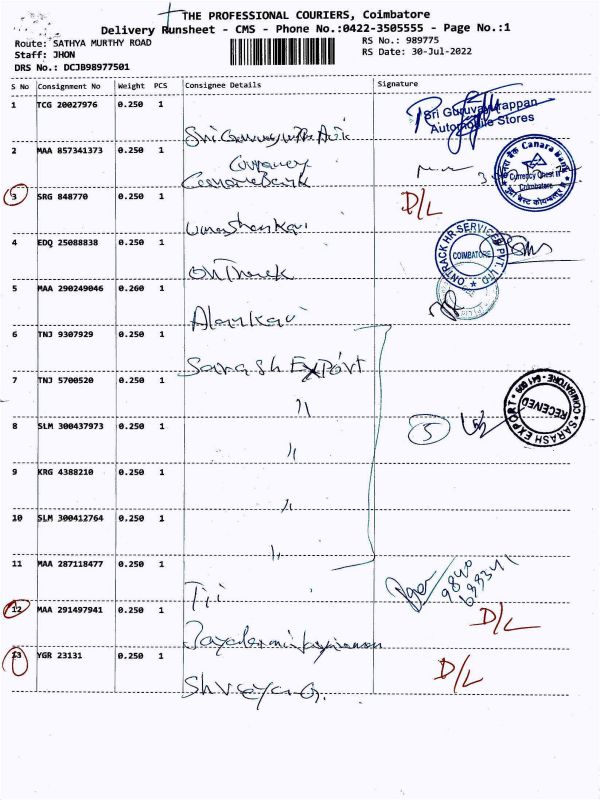 THE PROFESSIONAL COURIERS, Coimbatore
Delivery Runsheet - CMS - Phone No.:0422-3505555 - Page No.:1
Route: SATHYA MURTHY ROAD
RS No.: 989775
Staff: JHON
RS Date: 30-Jul-2022
DRS No.: DCJB98977501
S No Consignment No Weight PCS Consignee Details Signature
1 TCG 20027976 0.250 1
Sri Guruvayurappan
Automobile Stores
Sri
2 MAA 857341373 0.250 1
Currency
Canara Bank
Canara Bank
Currency Chest
Coimbatore
3 SRG 848770 0.250 1 D/L
Umashankari
4 EDQ 25088838 0.250 1
ONTRACK HR SERVICES PVT. LTD
COIMBATORE
5 MAA 290249046 0.260 1
Alankari
6 TNJ 9307929 0.250 1
Sarash Export
7 TNJ 5700520 0.250 1
"
SARASH EXPORT
RECEIVED
COIMBATORE
8 SLM 300437973 0.250 1 5
"
9 KRG 4388210 0.250 1
"
10 SLM 300412764 0.250 1
"
11 MAA 287118477 0.250 1
Tii
12 MAA 291497941 0.250 1 D/L
13 YGR 23131 0.250 1 D/L
Shreya G.